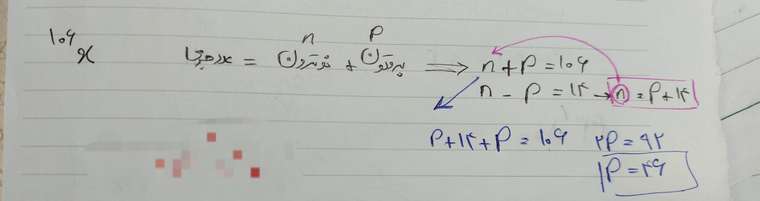 ۱۰۶X عدد جرمی = نوترون + پروتون ⟹ n + P = ۱۰۶
n P
n - P = ۱۴ → n = P + ۱۴
P + ۱۴ + P = ۱۰۶ ۲P = ۹۲
P = ۴۶